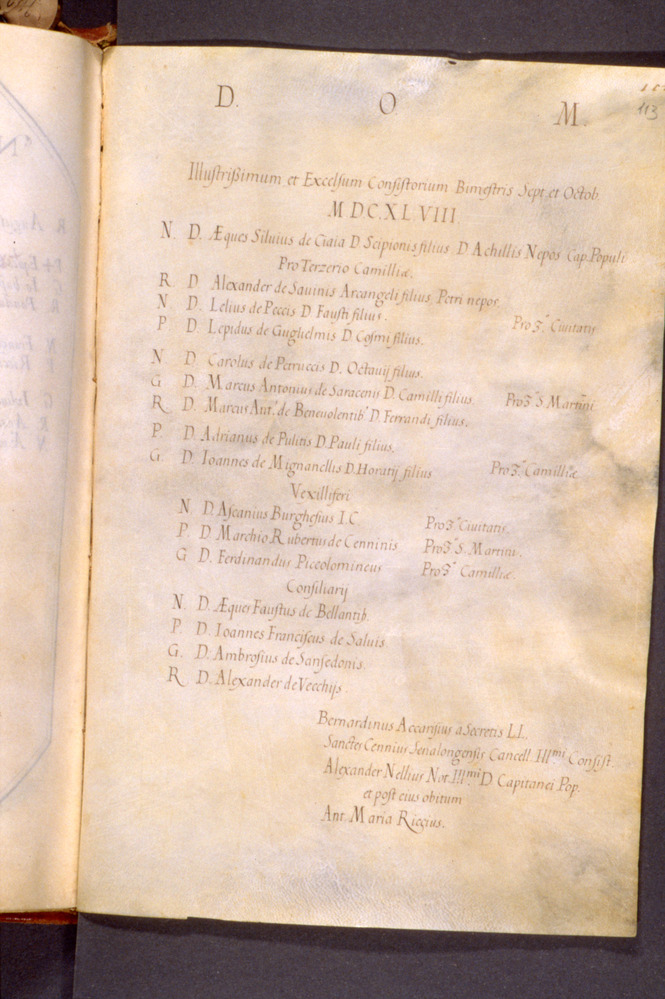 D. O. M.
113
Illustrißimum et Excelsum Consistorium Bimestris Sept. et Octob.
MDCXLVIII.
N. D. Æques Siluius de Ciaia D. Scipionis filius D. Achillis Nepos Cap. Populi
Pro Terzerio Camilliæ.
R. D. Alexander de Sauinis Arcangeli filius Petri nepos.
N. D. Lelius de Peccis D. Fausti filius. Pro 3.º Ciuitatis
P. D. Lepidus de Guglielmis D. Cosmi filius.
N. D. Carolus de Petruccis D. Octauij filius.
G. D. Marcus Antonius de Saracenis D. Camilli filius. Pro 3.º S. Martini
R. D. Marcus Ant.º de Beneuolentib.º D. Ferrandi filius.
P. D. Adrianus de Pulitis D. Pauli filius.
G. D. Ioannes de Mignanellis D. Horatij filius Pro 3.º Camilliæ
Vexilliferi
N. D. Ascanius Burghesius I.C. Pro 3.º Ciuitatis.
P. D. Marchio Rubertus de Cenninis Pro 3.º S. Martini.
G. D. Ferdinandus Piccolomineus Pro 3.º Camilliæ.
Consiliarij
N. D. Æques Faustus de Bellantib.
P. D. Ioannes Franciscus de Saluis
G. D. Ambrosius de Sansedonis.
R. D. Alexander de Vecchijs.
Bernardinus Accarisius a Secretis LL.
Sanctes Cennius Senalongensis Cancell. Ill.mi Consist.
Alexander Nellius Not. Ill.mi D. Capitanei Pop.
et post eius obitum
Ant. Maria Riccius.